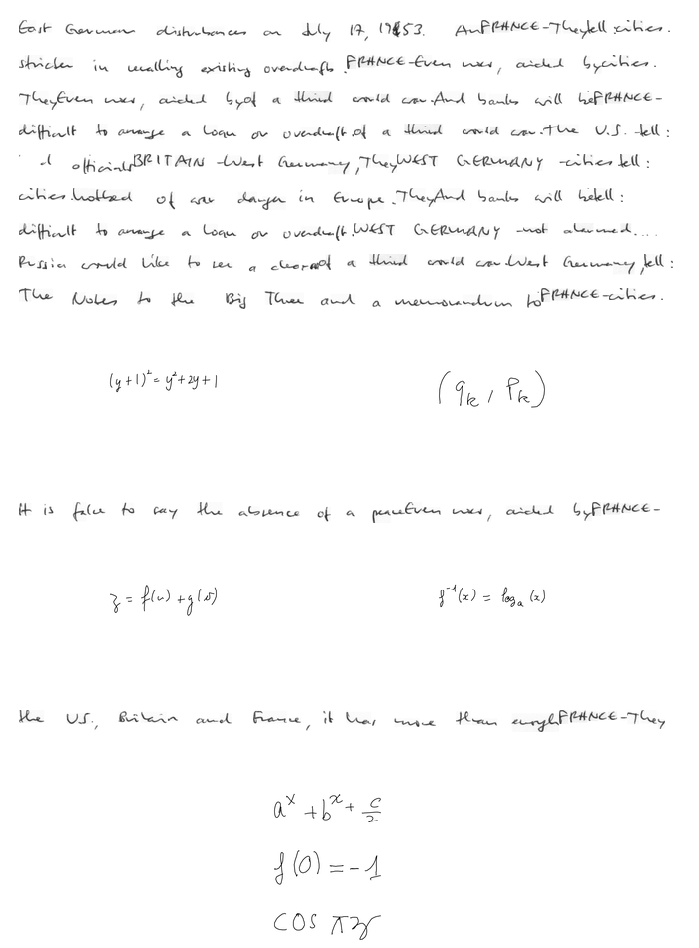 East German disturbances on July 17, 1953. And FRANCE-They tell cities.
stricter in recalling existing overdrafts. FRANCE-Even now, aided by cities.
They Even now, aided by of a third world war. And banks will be FRANCE-
difficult to arrange a loan or overdraft. of a third world war. The U.S. tell:
officials BRITAIN-West Germany, They WEST GERMANY-cities tell:
cities. hotbed of war danger in Europe. They And banks will be tell:
difficult to arrange a loan or overdraft. WEST GERMANY-not alarmed....
Russia would like to see a clear of a third world war. West Germany, tell:
The Notes to the Big Three and a memorandum to FRANCE-cities.
(y+1)²=y²+2y+1
(qₖ, Pₖ)
It is false to say the absence of a peace Even now, aided by FRANCE-
z = f(u) + g(v)
f⁻¹(x) = logₐ(x)
the U.S., Britain and France, it has more than enough FRANCE-They
aˣ + bˣ + c/2
f(0) = -1
cos πz